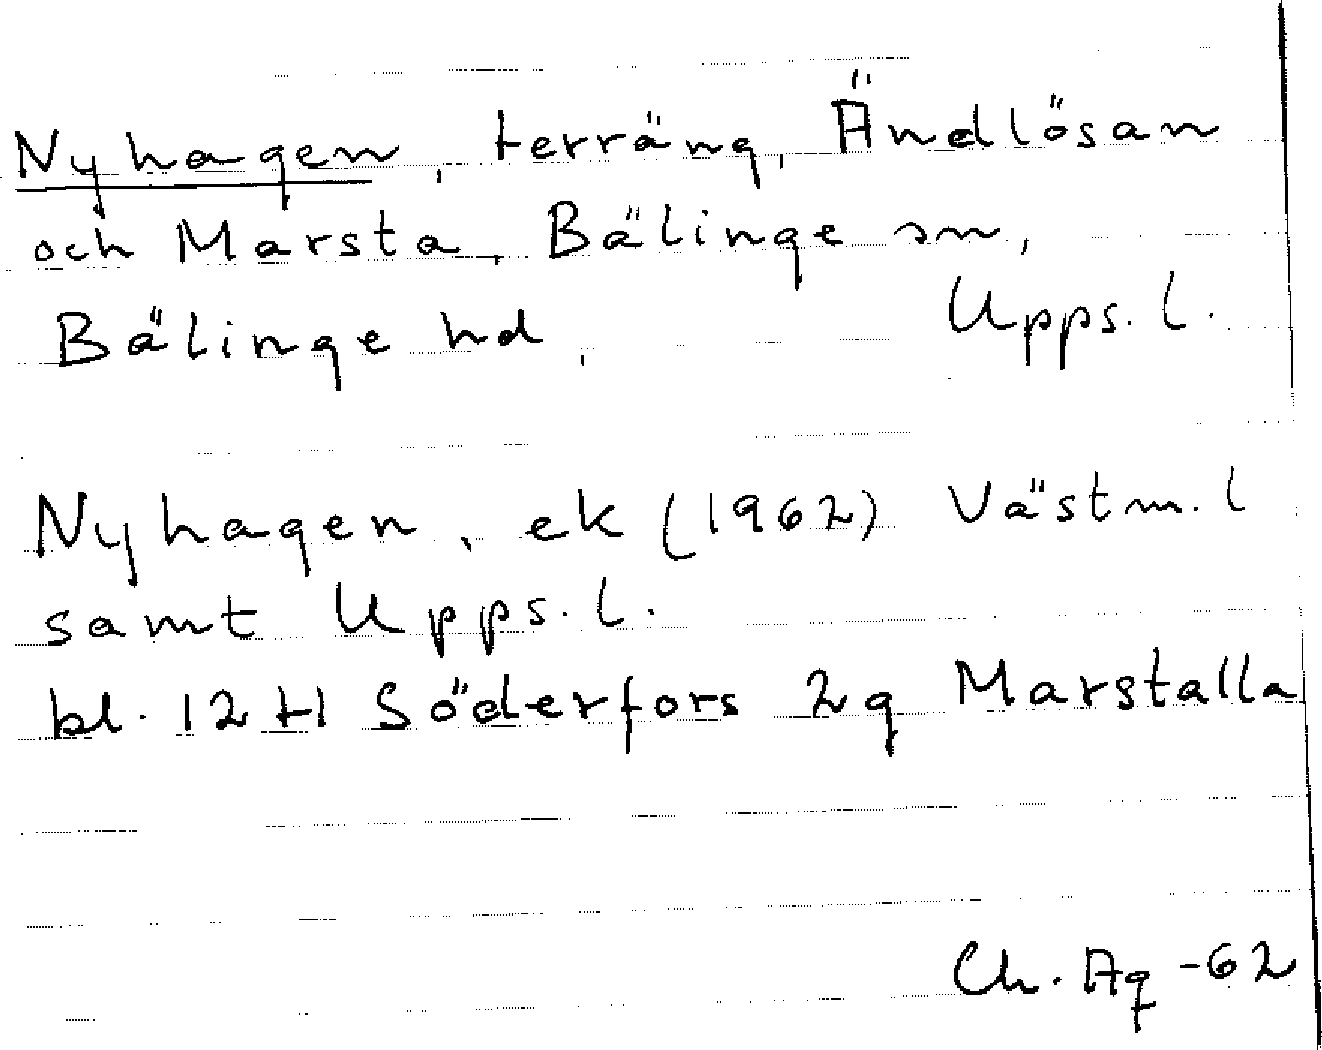 Nyhagen, terräng, Ändlösan
och Marsta, Bälinge sn,
Bälinge hd, Upps. l.
Nyhagen, ek (1962) Västm. l
samt Upps. l.
bl. 12 H Söderfors 2g Marstalla
Ch. Ag -62